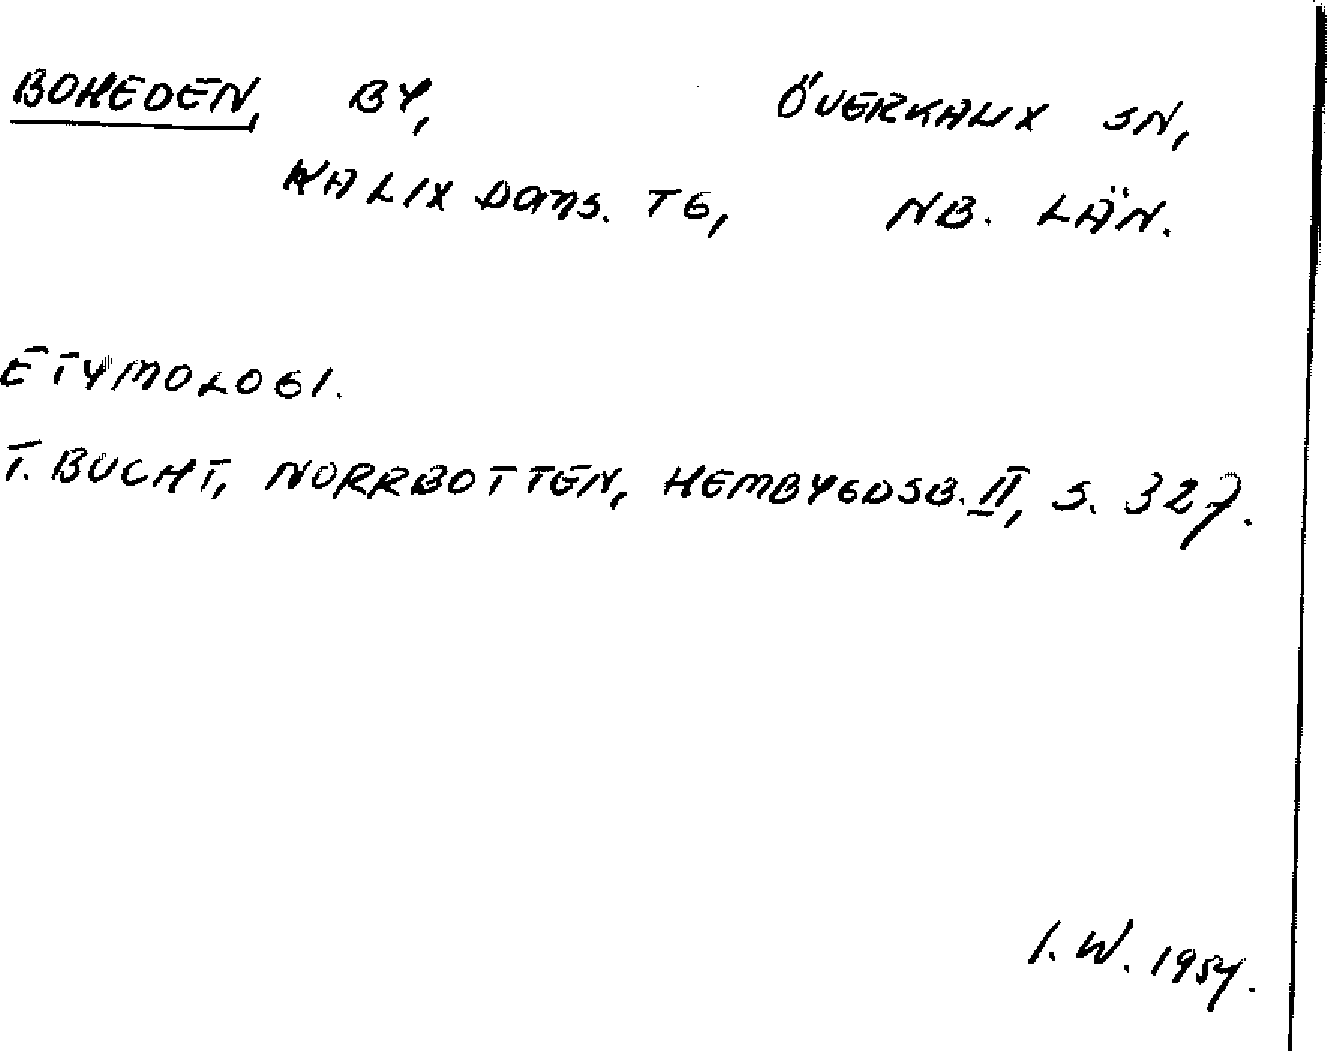 BOHEDEN, BY, ÖVERKALIX SN,
KALIX DOMS. TG, NB. LÄN.
ETYMOLOGI.
T. BUCHT, NORRBOTTEN, HEMBYGDSB. II, S. 327.
I. W. 1954.